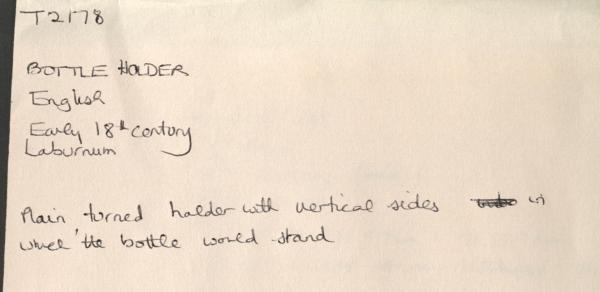 T2178
BOTTLE HOLDER
English
Early 18th century
Laburnum
Plain turned holder with vertical sides in
which the bottle would stand